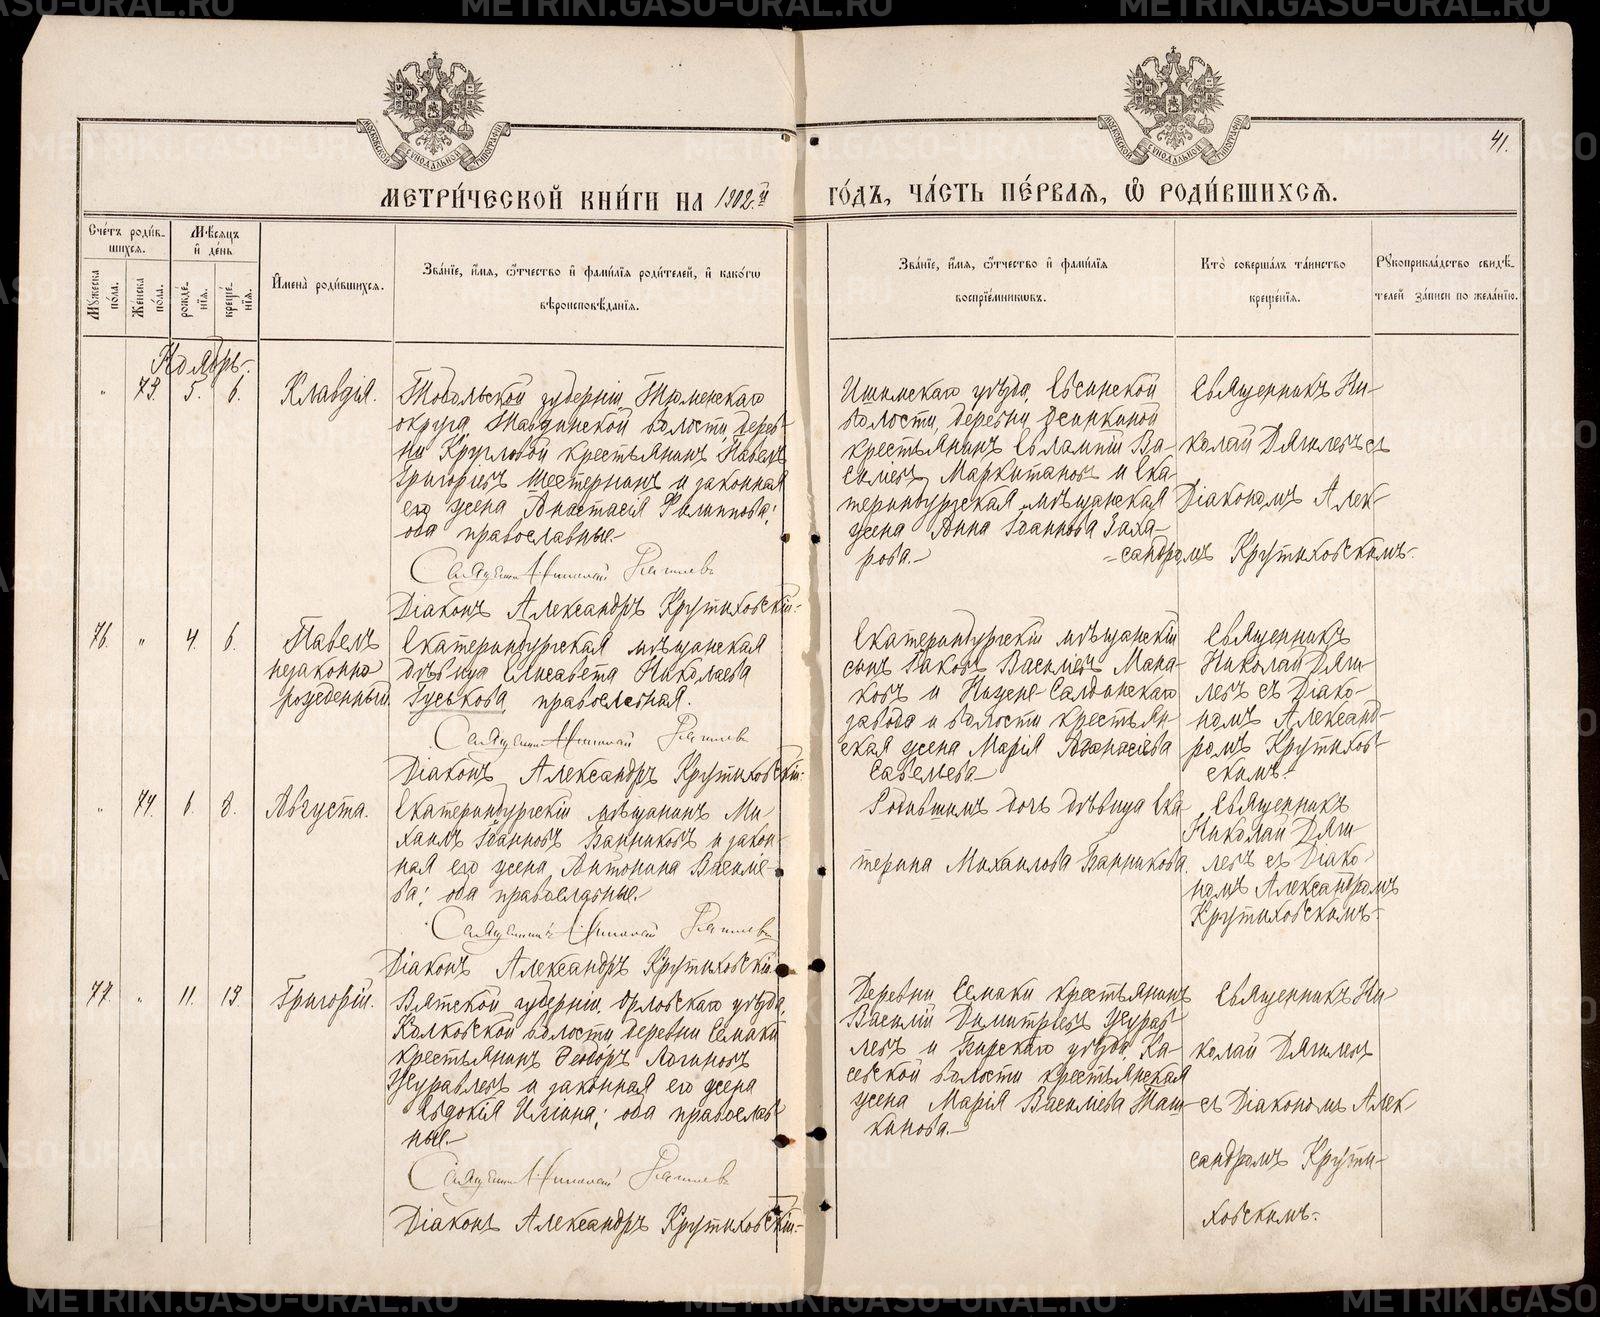 МЕТРИ́ЧЕСКОЙ КНИ́ГИ НА 1902.й ГО́ДЪ, ЧА́СТЬ ПЕ́РВАЯ, Ѡ҆ РОДИ́ВШИХСЯ.
41.
Сче́тъ роди́в-
шихся.
Мꙋжеска по́ла.
Женска по́ла.
Мѣ́сяцъ
и҆ де́нь
рожде́-
нїя.
креще́-
нїя.
И҆мена̀ роди́вшихся.
Зва́нїе, и҆́мя, ѻ҆́тчество и҆ фами́лїя роди́телей, и҆ како́гѡ
вѣроисповѣ́данїя.
Зва́нїе, и҆́мя, ѻ҆́тчество и҆ фами́лїя
воспрїе́мникѡвъ.
Кто̀ соверша́лъ та́инство
креще́нїя.
Рꙋкоприкла́дство свидѣ́-
телей за́писи по жела́нїю.
Ноябрь.
" 73. 5. 6. Клавдія.
Тобольской губерніи, Тюменскаго
округа, Тавдинской волости, дерев-
ни Кругловой крестьянинъ Павелъ
Григоріевъ Шестернинъ и законная
его жена Анастасія Филиппова;
оба православные.
Священникъ Николай Дягилевъ
Діаконъ Александръ Крутиховскій.
Ишимскаго уѣзда,
волости, деревни
крестьянинъ Евлампій Ва-
сильевъ Маркитановъ и Ека-
теринбургская мѣщанская
жена Анна Іоаннова Заха-
рова.
Священникъ Ни-
колай Дягилевъ съ
Діакономъ Алек-
сандромъ Крутиховскимъ.
76. " 4. 6. Павелъ
незаконно
рожденный.
Екатеринбургская мѣщанская
дѣвица Елисавета Николаева
Гуськова, православная.
Священникъ Николай Дягилевъ
Діаконъ Александръ Крутиховскій.
Екатеринбургскій мѣщанскій
сынъ Іаковъ Васильевъ Мана-
ковъ и Нижне-Салдинскаго
завода и волости крестьян-
ская жена Марія Аѳанасіева
Савельева
Священникъ
Николай Дяги-
левъ съ Діако-
номъ Александ-
ромъ Крутихов-
скимъ.
" 74. 6. 8. Августа.
Екатеринбургскій мѣщанинъ Ми-
хаилъ Іоанновъ Банниковъ и закон-
ная его жена Антонина Василіе-
ва; оба православные.
Священникъ Николай Дягилевъ
Діаконъ Александръ Крутиховскій.
Родившимъ дочь дѣвица Ека
терина Михаилова Банникова.
Священникъ
Николай Дяги-
левъ съ Діако-
номъ Александромъ
Крутиховскимъ.
77. " 11. 13. Григорій.
Вятской губерніи, Орловскаго уѣзда,
Колковской волости, деревни Семаки
крестьянинъ Ѳеодоръ Логиновъ
Журавлевъ и законная его жена
Евдокія Иліина; оба православ-
ные.
Священникъ Николай Дягилевъ
Діаконъ Александръ Крутиховскій.
Деревни Семаки крестьянинъ
Василій Димитріевъ Журав-
левъ и Бирскаго уѣзда, Ка-
севской волости крестьянская
жена Марія Васильева Таш-
кинова.
Священникъ Ни-
колай Дягилевъ
съ Діакономъ Алек-
сандромъ Крути-
ховскимъ.
METRIKI.GASU-URAL.RU